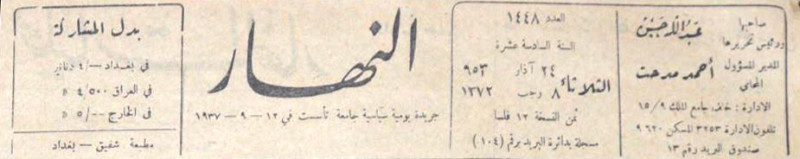 صاحبها
ورئيس تحريرها
عبد الله حسين
المدير المسؤول
المحامي
أحمد مدحت
الادارة : خلف جامع الملك ١٥/٩
تلفون الادارة ٣٢٥٣ المسكن ٩٦٢٠
صندوق البريد رقم ١٣
العدد ١٤٤٨
السنة السادسة عشرة
الثلاثاء
٢٤ آذار ٩٥٣
٨ رجب ١٣٧٢
ثمن النسخة ١٢ فلسا
مسجلة بدائرة البريد برقم (١٠٤)
النهار
جريدة يومية سياسية جامعة تأسست في ١٢ – ٩ – ١٩٣٧
بدل المشاركة
في بغداد –/٤ دنانير
في العراق ٤/٥٠٠ »
في الخارج ٥/٠٠ »
مطبعة شفيق – بغداد